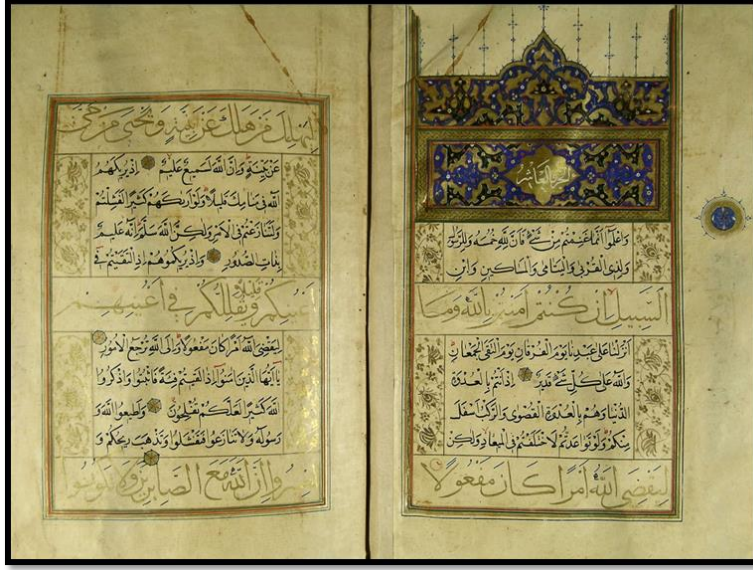 الجزء العاشر
وَاعْلَمُوا أَنَّمَا غَنِمْتُمْ مِنْ شَيْءٍ فَاَنَّ لِلّٰهِ خُمُسَهُ وَلِلرَّسُولِ
وَلِذِي الْقُرْبٰى وَالْيَتَامٰى وَالْمَسَاكِينِ وَابْنِ
السَّبِيلِ اِنْ كُنْتُمْ اٰمَنْتُمْ بِاللّٰهِ وَمَا
اَنْزَلْنَا عَلٰى عَبْدِنَا يَوْمَ الْفُرْقَانِ يَوْمَ الْتَقَى الْجَمْعَانِ
وَاللّٰهُ عَلٰى كُلِّ شَيْءٍ قَدِيرٌ اِذْ اَنْتُمْ بِالْعُدْوَةِ
الدُّنْيَا وَهُمْ بِالْعُدْوَةِ الْقُصْوٰى وَالرَّكْبُ اَسْفَلَ
مِنْكُمْ وَلَوْ تَوَاعَدْتُمْ لَاخْتَلَفْتُمْ فِي الْمِيعَادِ وَلٰكِنْ
لِيَقْضِيَ اللّٰهُ اَمْرًا كَانَ مَفْعُولًا
لِيَهْلِكَ مَنْ هَلَكَ عَنْ بَيِّنَةٍ وَيَحْيٰى مَنْ حَيَّ
عَنْ بَيِّنَةٍ وَاِنَّ اللّٰهَ لَسَمِيعٌ عَلِيمٌ اِذْ يُرِيكَهُمُ
اللّٰهُ فِي مَنَامِكَ قَلِيلًا وَلَوْ اَرٰيكَهُمْ كَثِيرًا لَفَشِلْتُمْ
وَلَتَنَازَعْتُمْ فِي الْاَمْرِ وَلٰكِنَّ اللّٰهَ سَلَّمَ اِنَّهُ عَلِيمٌ
بِذَاتِ الصُّدُورِ وَاِذْ يُرِيكُمُوهُمْ اِذِ الْتَقَيْتُمْ فِي
اَعْيُنِكُمْ قَلِيلًا وَيُقَلِّلُكُمْ فِي اَعْيُنِهِمْ
لِيَقْضِيَ اللّٰهُ اَمْرًا كَانَ مَفْعُولًا وَاِلَى اللّٰهِ تُرْجَعُ الْاُمُورُ
يَا اَيُّهَا الَّذِينَ اٰمَنُوا اِذَا لَقِيتُمْ فِئَةً فَاثْبُتُوا وَاذْكُرُوا
اللّٰهَ كَثِيرًا لَعَلَّكُمْ تُفْلِحُونَ وَاَطِيعُوا اللّٰهَ وَ
رَسُولَهُ وَلَا تَنَازَعُوا فَتَفْشَلُوا وَتَذْهَبَ رِيحُكُمْ وَ
اصْبِرُوا اِنَّ اللّٰهَ مَعَ الصَّابِرِينَ وَلَا تَكُونُوا